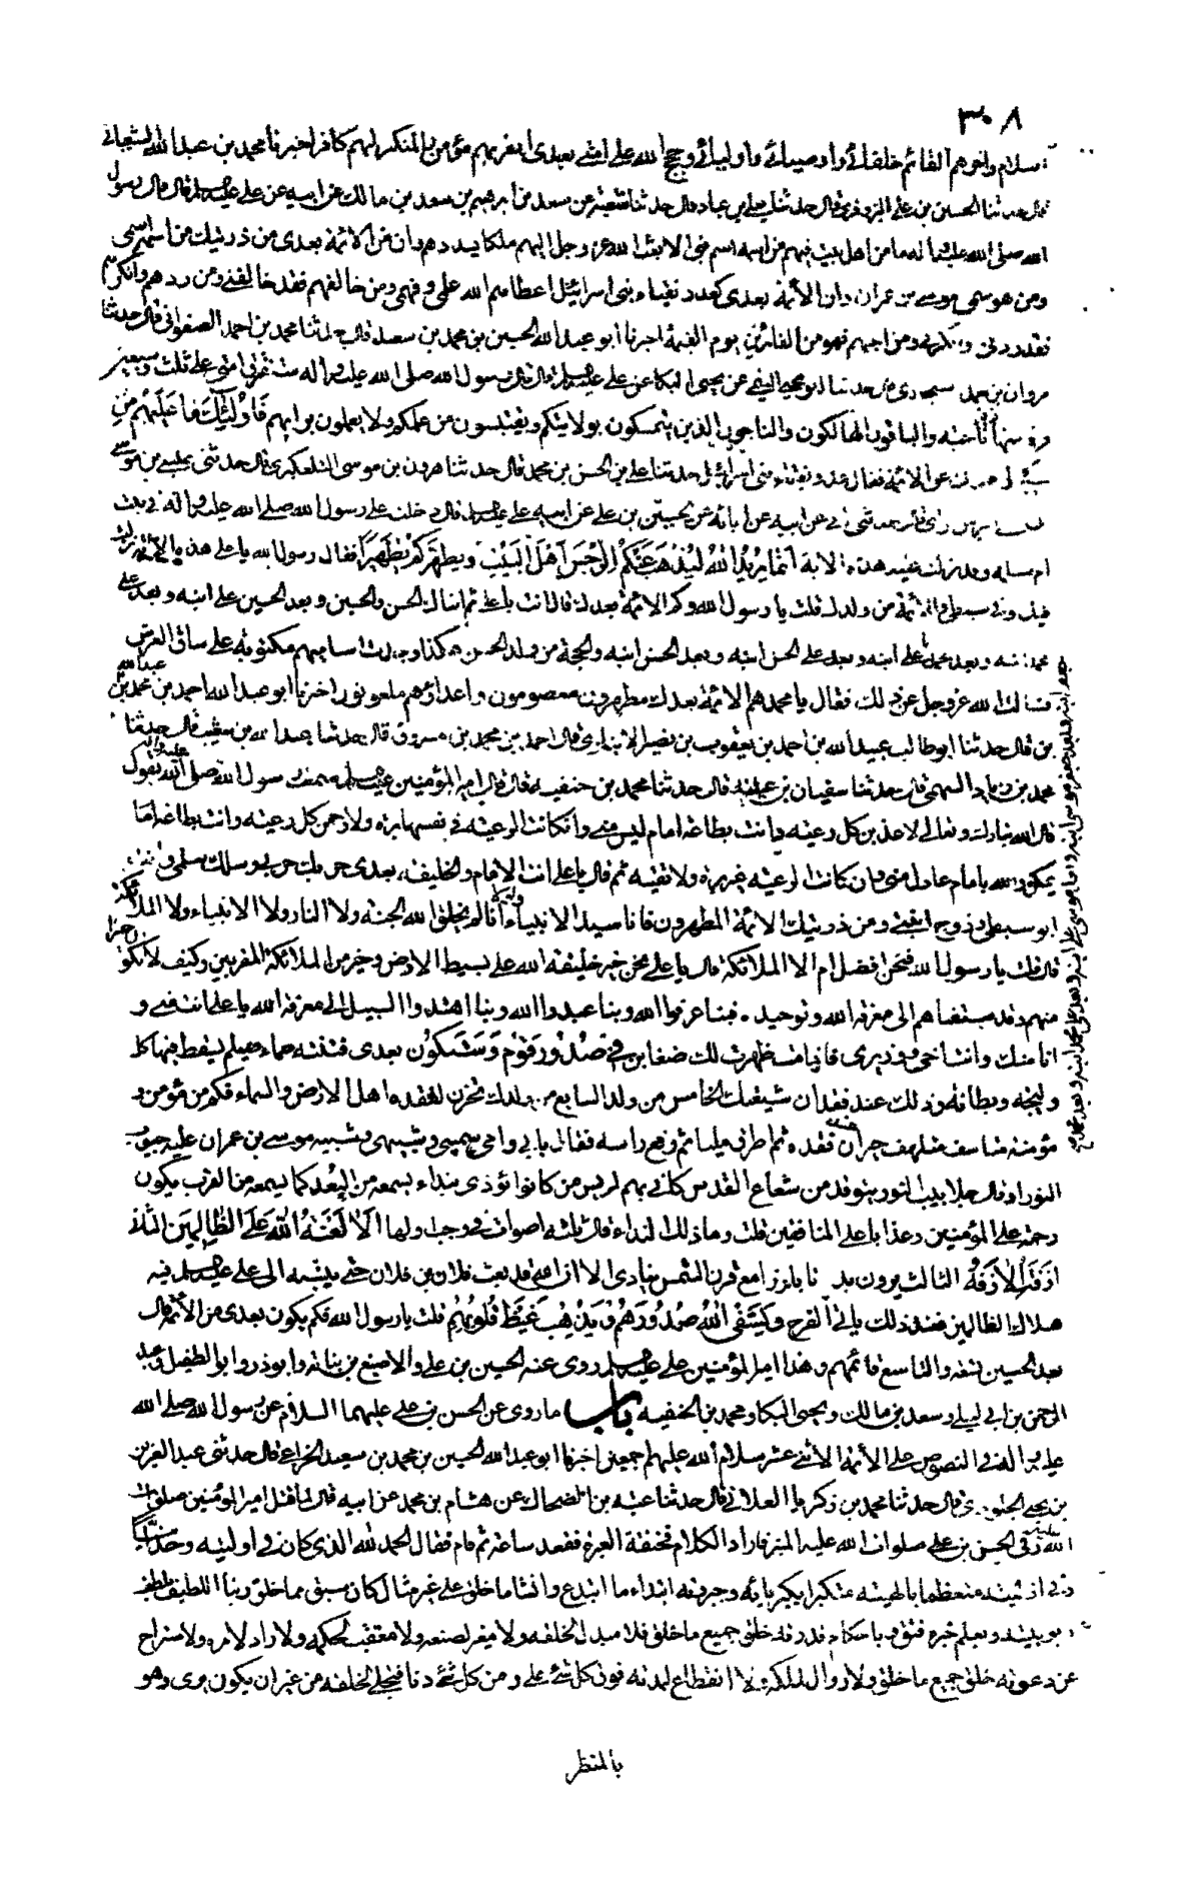 ٣٠٨
وآخرهم القائم خلفائي وأوصيائي وأوليائي وحجج الله على امتي بعدي المقر بهم مؤمن والمنكر لهم كافر اخبرنا محمد بن عبد الله الشيباني
قال حدثنا الحسين بن علي البزوفري قال حدثنا يعلي بن عباد قال حدثنا شعبة عن سعد بن ابرهيم بن سعد بن مالك عن ابيه عن علي عليه السلم قال قال رسول
الله صلى الله عليه ما من اهل بيت فيهم من اسمه اسم نبي الا بعث الله عز وجل اليهم ملكا يسددهم وان من الائمة بعدي من ذريتك من اسمه اسمي
ومن هو سمي موسى بن عمران وان الائمة بعدي كعدد نقباء بني اسرائيل اعطاهم الله علمي وفهمي ومن خالفهم فقد خالفني ومن ردهم وانكرهم
فقد ردني و ومن احبهم فهو من الفائزين يوم القيمة اخبرنا ابو عبد الله الحسين بن محمد بن سعيد قال حدثنا محمد بن احمد الصفواني قال حدثنا
مروان بن محمد قال حدثنا ابو يحيى التيمي عن يحيى البكا عن علي عليه السلم قال قال رسول الله صلى الله عليه واله ستفترق امتي على ثلث وسبعين
فرقة منها ناجية والباقون الهالكون والناجون الذين يتمسكون بولايتكم ويقتبسون من علمكم ولا يعملون برايهم فَأُولَئِكَ مَا عَلَيْهِمْ مِنْ
سبيل عن الائمة فقال عدد نقباء بني اسرائيل حدثنا علي بن الحسن بن محمد قال حدثنا هرون بن موسى التلعكبري قال حدثني عيسى بن موسى
قال حدثني ابي عن ابيه عن ابائه عن الحسين بن علي عن ابيه علي عليه السلم قال دخلت على رسول الله صلى الله عليه واله في بيت
ام سلمه وقد نزلت عليه هذه الاية اِنَّمَا يُرِيدُ اللهُ لِيُذْهِبَ عَنْكُمُ الرِّجْسَ اَهْلَ الْبَيْتِ وَيُطَهِّرَكُمْ تَطْهِيرًا فقال رسول الله يا علي هذه الاية نزلت
فيك وفي سبطي والائمة من ولدك قلت يا رسول الله وكم الائمة بعدك قال انت يا علي ثم ابناك الحسن والحسين وبعد الحسين علي ابنه وبعد علي
محمد ابنه وبعد محمد علي ابنه وبعد علي الحسن ابنه وبعد الحسن ابنه والحجة من ولد الحسن هكذا وجدت اساميهم مكتوبة على ساق العرش
بعد ابنه وبعد جعفر موسى ابنه وبعد موسى علي ابنه وبعد علي محمد ابنه وبعد محمد
فسالت الله عز وجل عن ذلك فقال يا محمد هم الائمة بعدك مطهرون معصومون واعداؤهم ملعونون اخبرنا ابو عبد الله احمد بن محمد بن عبد الله
بن قال حدثنا ابو طالب عبيد الله بن احمد بن يعقوب بن نصير الانباري قال احمد بن محمد بن مسروق قال حدثنا عبد الله بن شبيب قال حدثنا
محمد بن زياد السهمي قال حدثنا سفيان بن عيينة قال حدثنا محمد بن حنفيه قال قال امير المؤمنين عليه السلم سمعت رسول الله صلى الله عليه واله يقول
قال الله تبارك وتعالى لاعذبن كل رعيته دانت بطاعة امام ليس مني وان كانت الرعيته في نفسها برة ولارحمن كل رعيته دانت بطاعة امام
عادل مني وان كانت الرعيته غير برة ولا تقية ثم قال يا علي انت الامام والخليفه بعدي حربك حربي وسلمك سلمي وانت
ابو سبطي وزوج ابنتي ومن ذريتك الائمة المطهرون فانا سيد الانبياء ولولانا لم يخلق الله الجنة ولا النار ولا الانبياء ولا الملائكة
قال قلت يا رسول الله فنحن افضل ام الملائكة قال يا علي نحن خير خليقة الله على بسيط الارض وخير من الملائكة المقربين وكيف لا نكون خيرا
منهم وقد سبقناهم الى معرفة الله وتوحيده فبنا عرفوا الله وبنا عبدوا الله وبنا اهتدوا السبيل الى معرفة الله يا علي انت مني و
انا منك وانت اخي ووزيري فاذا مت ظهرت لك ضغاين في صُدُورِ قَوْمٍ وَسَتَكُونُ بعدي فتنة صماء صيلم يسقط فيها كل
وليجة وبطانة وذلك عند فقدان شيعتك الخامس من ولد السابع من ولدك تحزن لفقده اهل الارض والسماء فكم من مؤمن و
مؤمنة متاسف متلهف حيران عند فقده ثم اطرق مليا ثم رفع راسه فقال بابي وامي سميي وشبيهي وشبيه موسى بن عمران عليه جيوب
النور او قال جلابيب النور يتوقد من شعاع القدس كاني بهم ايس من كانوا نودي بنداء يسمعه من البُعد كما يسمعه من القرب يكون
رحمة على المؤمنين وعذابا على المنافقين قلت وما ذلك النداء قال ثلثة اصوات في رجب اولها اَلَا لَعْنَةُ اللهِ عَلَى الظَّالِمِينَ الثاني
اَزِفَتِ الْاٰزِفَةُ الثالث يرون بدنا بارزا مع قرن الشمس ينادي الا ان الله قد بعث فلان بن فلان حتى ينسبه الى علي عليه السلم فيه
هلاك الظالمين فعند ذلك ياتي الفرج وَيَشْفِي اللهُ صُدُورَهُمْ وَيُذْهِبْ غَيْظَ قُلُوبِهِمْ قلت يا رسول الله فكم يكون بعدي من الائمة قال
بعد الحسين تسعة والتاسع قائمهم وهذا امير المؤمنين علي عليه السلم روى عنه الحسين بن علي والاصبغ بن نباتة وابو ذر وابو الطفيل وعبد
الرحمن بن ابي ليلى وسعد بن مالك ويحيى البكا ومحمد بن الحنفيه باب ما روي عن الحسن بن علي عليهما السلام عن رسول الله صلى الله
عليه واله في النصوص على الائمة الاثني عشر سلام الله عليهم اجمعين اخبرنا ابو عبد الله الحسين بن محمد بن سعيد الخزاعي قال حدثني عبد العزيز
بن يحيى الجلودي قال حدثنا محمد بن زكريا العلائي قال حدثنا عتبه بن الضحاك عن هشام بن محمد عن ابيه قال لما قتل امير المؤمنين صلوات
الله عليه رقي الحسن بن علي صلوات الله عليه المنبر فاراد الكلام فخنقته العبرة فقعد ساعة ثم قام فقال الحمد لله الذي كان في اوليته وحدانيا
وفي ازليته متعظما بالهيته متكبرا بكبريائه وجبروته ابتداء ما ابتدع وانشا ما خلق على غير مثال كان سبق مما خلق ربنا اللطيف بلطف
ربوبيته وبعلم خبره فتق وباحكام قدرته خلق جميع ما خلق فلا مبدل لخلقه ولا مغير لصنعه ولا معقب لحكمه ولا راد لامره ولا مستراح
عن دعوته خلق جميع ما خلق ولا زوال لملكه ولا انقطاع لمدته فوق كل شئ علا ومن كل شئ دنا فتجلى لخلقه من غير ان يكون يرى وهو
بالمنظر